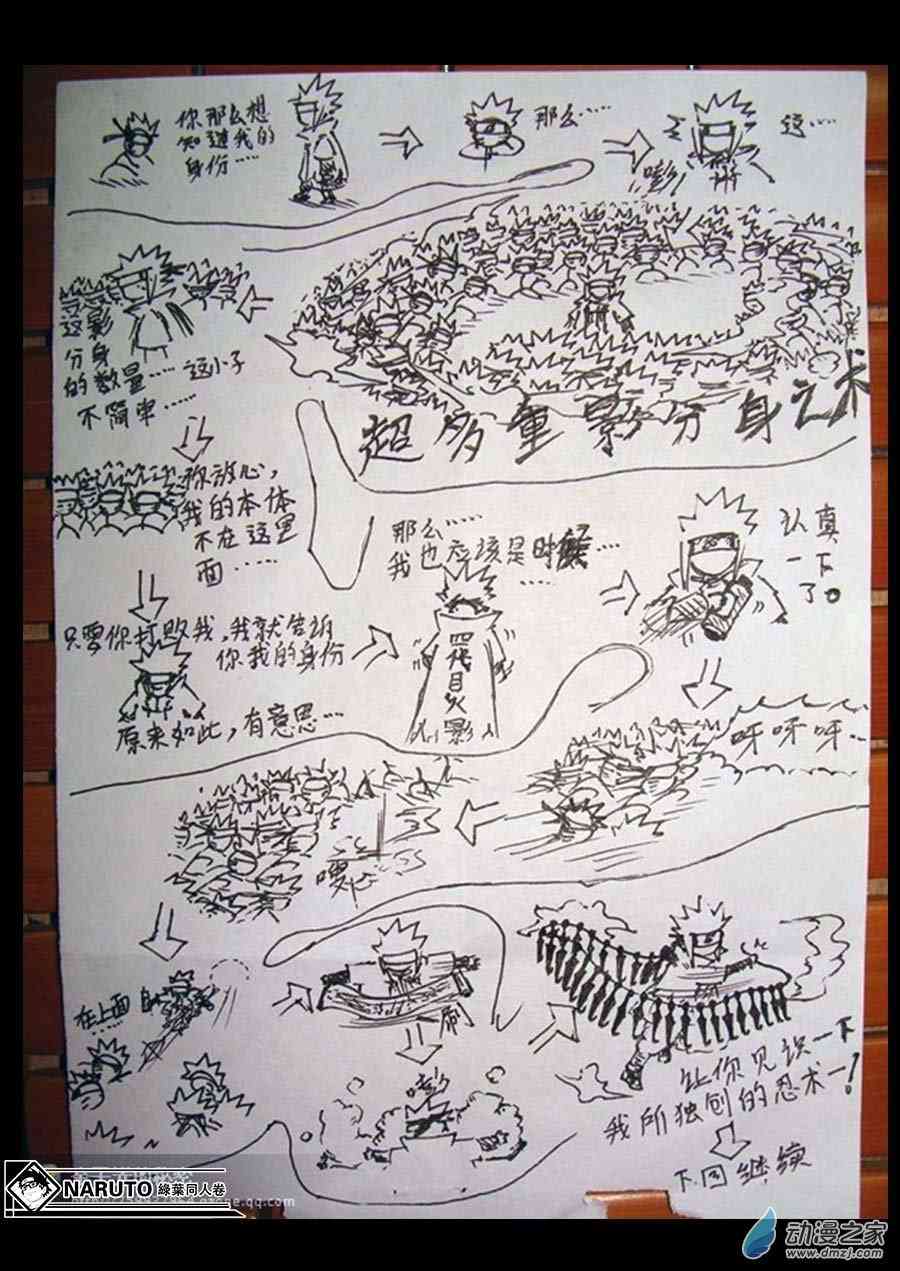 你那么想
知道我的
身份……
那么……
这……
嘭!
超多重影分身之术
这影
分身
的数量……
不简单……
这小子
你放心,
我的本体
不在这里
面……
只要你打败我,我就告诉
你我的身份
原来如此,有意思…
那么……
我也应该是时候…
……
四代目火影
认真
一下
了。
呀呀呀…
在上面
……
刷
嘭
让你见识一下
我所独创的忍术—!
下回继续
NARUTO 綠葉同人卷
动漫之家
www.dmzj.com